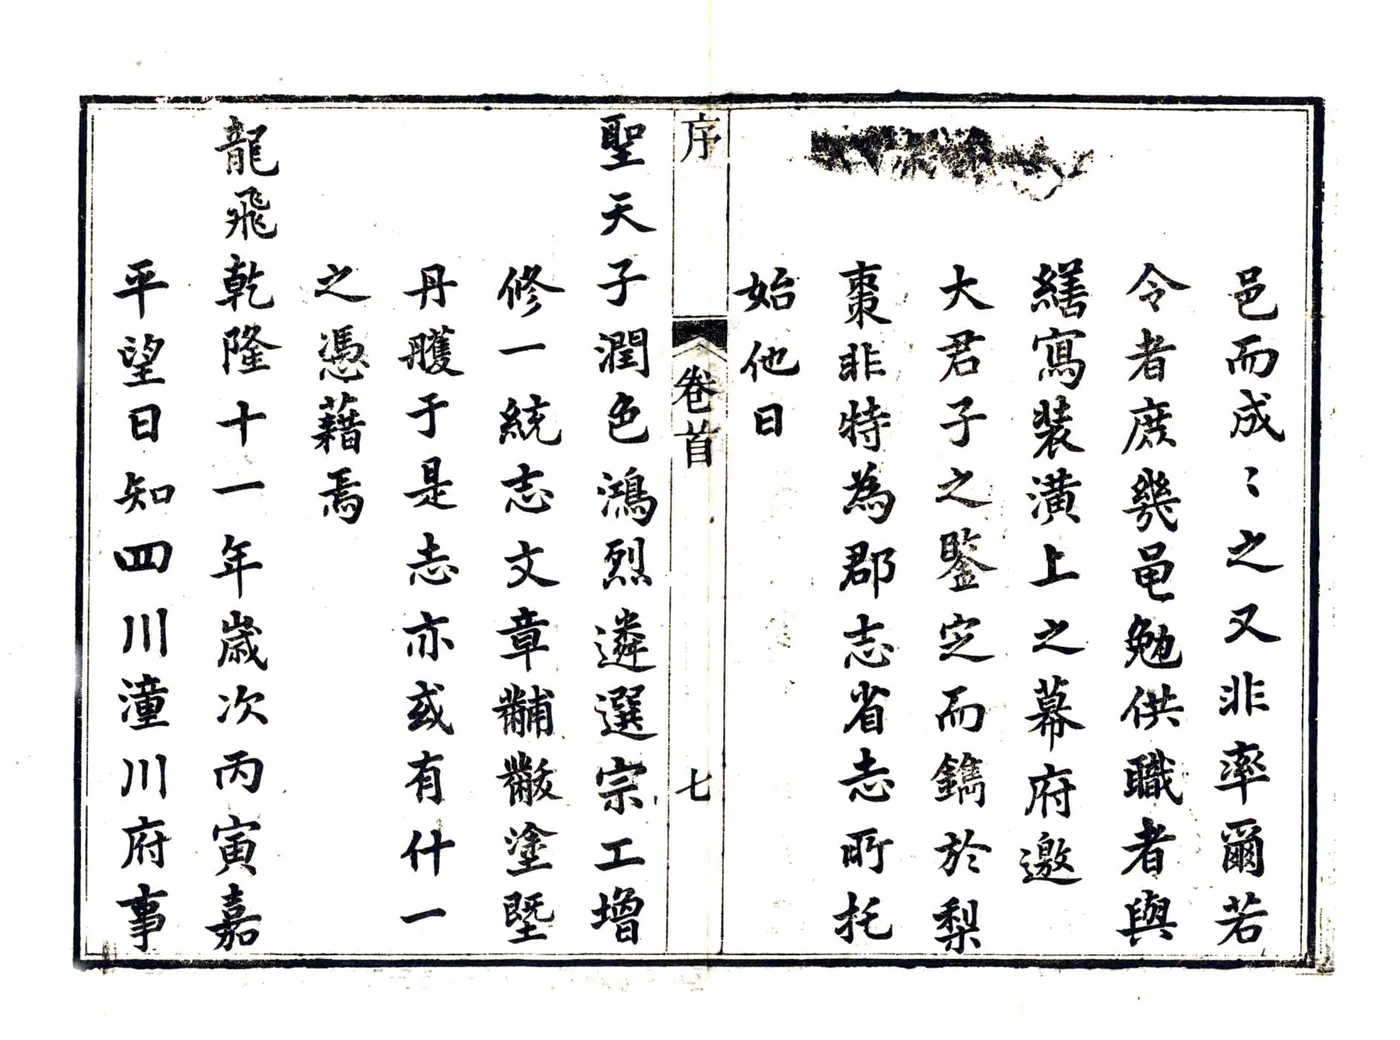 邑而成〻之又非率爾若
令者庶幾黽勉供職者與
繕寫裝潢上之幕府邀
大君子之鑒定而鐫於梨
棗非特為郡志省志所托
始他日
序
卷首
七
聖天子潤色鴻烈遴選宗工增
修一統志文章黼黻塗墍
丹雘于是志亦或有什一
之憑藉焉
龍飛乾隆十一年歲次丙寅嘉
平望日知四川潼川府事